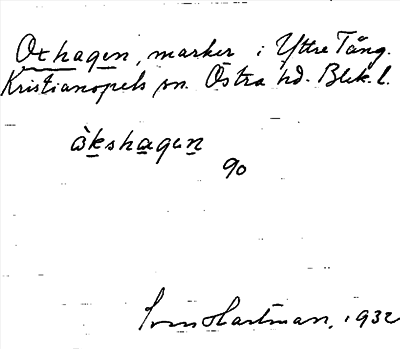 Oxhagen, marker i Yttre Tång.
Kristianopels sn. Östra hd. Blek. l.
òkshagen
90
Sven Hartman, 1932